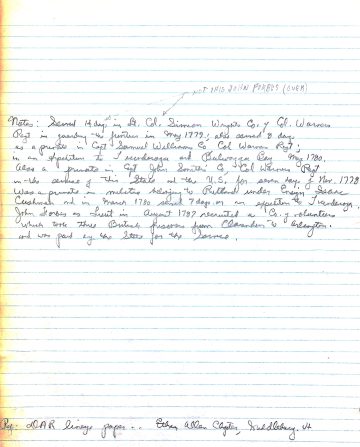 NOT THIS JOHN FORBES (OVER)
Notes: Served 14 days in Lt. Col. Simeon Wright's Co. & Col. Warren's
Regt in guarding the frontier in May 1779; also served 8 days
as a private in Capt Samuel Williams Co, Col Warren Regt;
in an expedition to Ticonderoga and Bulwagga Bay May 1780.
Also a private in Capt John Smith's Co, Col Warren Regt
in the service of this State at the U.S. for seven days & Nov. 1778
Was a private in militia belonging to Rutland under Ensign Isaac
Cushman and in March 1780 served 7 days in an expedition to Ticonderoga.
John Forbes as Lieut in August 1787 recruited a Co. of volunteers
which took three British prisoners from Clarendon to Arlington.
and was paid by the State for the service.
DAR lineage paper -- Ethan Allen Chapter, Middlebury, Vt